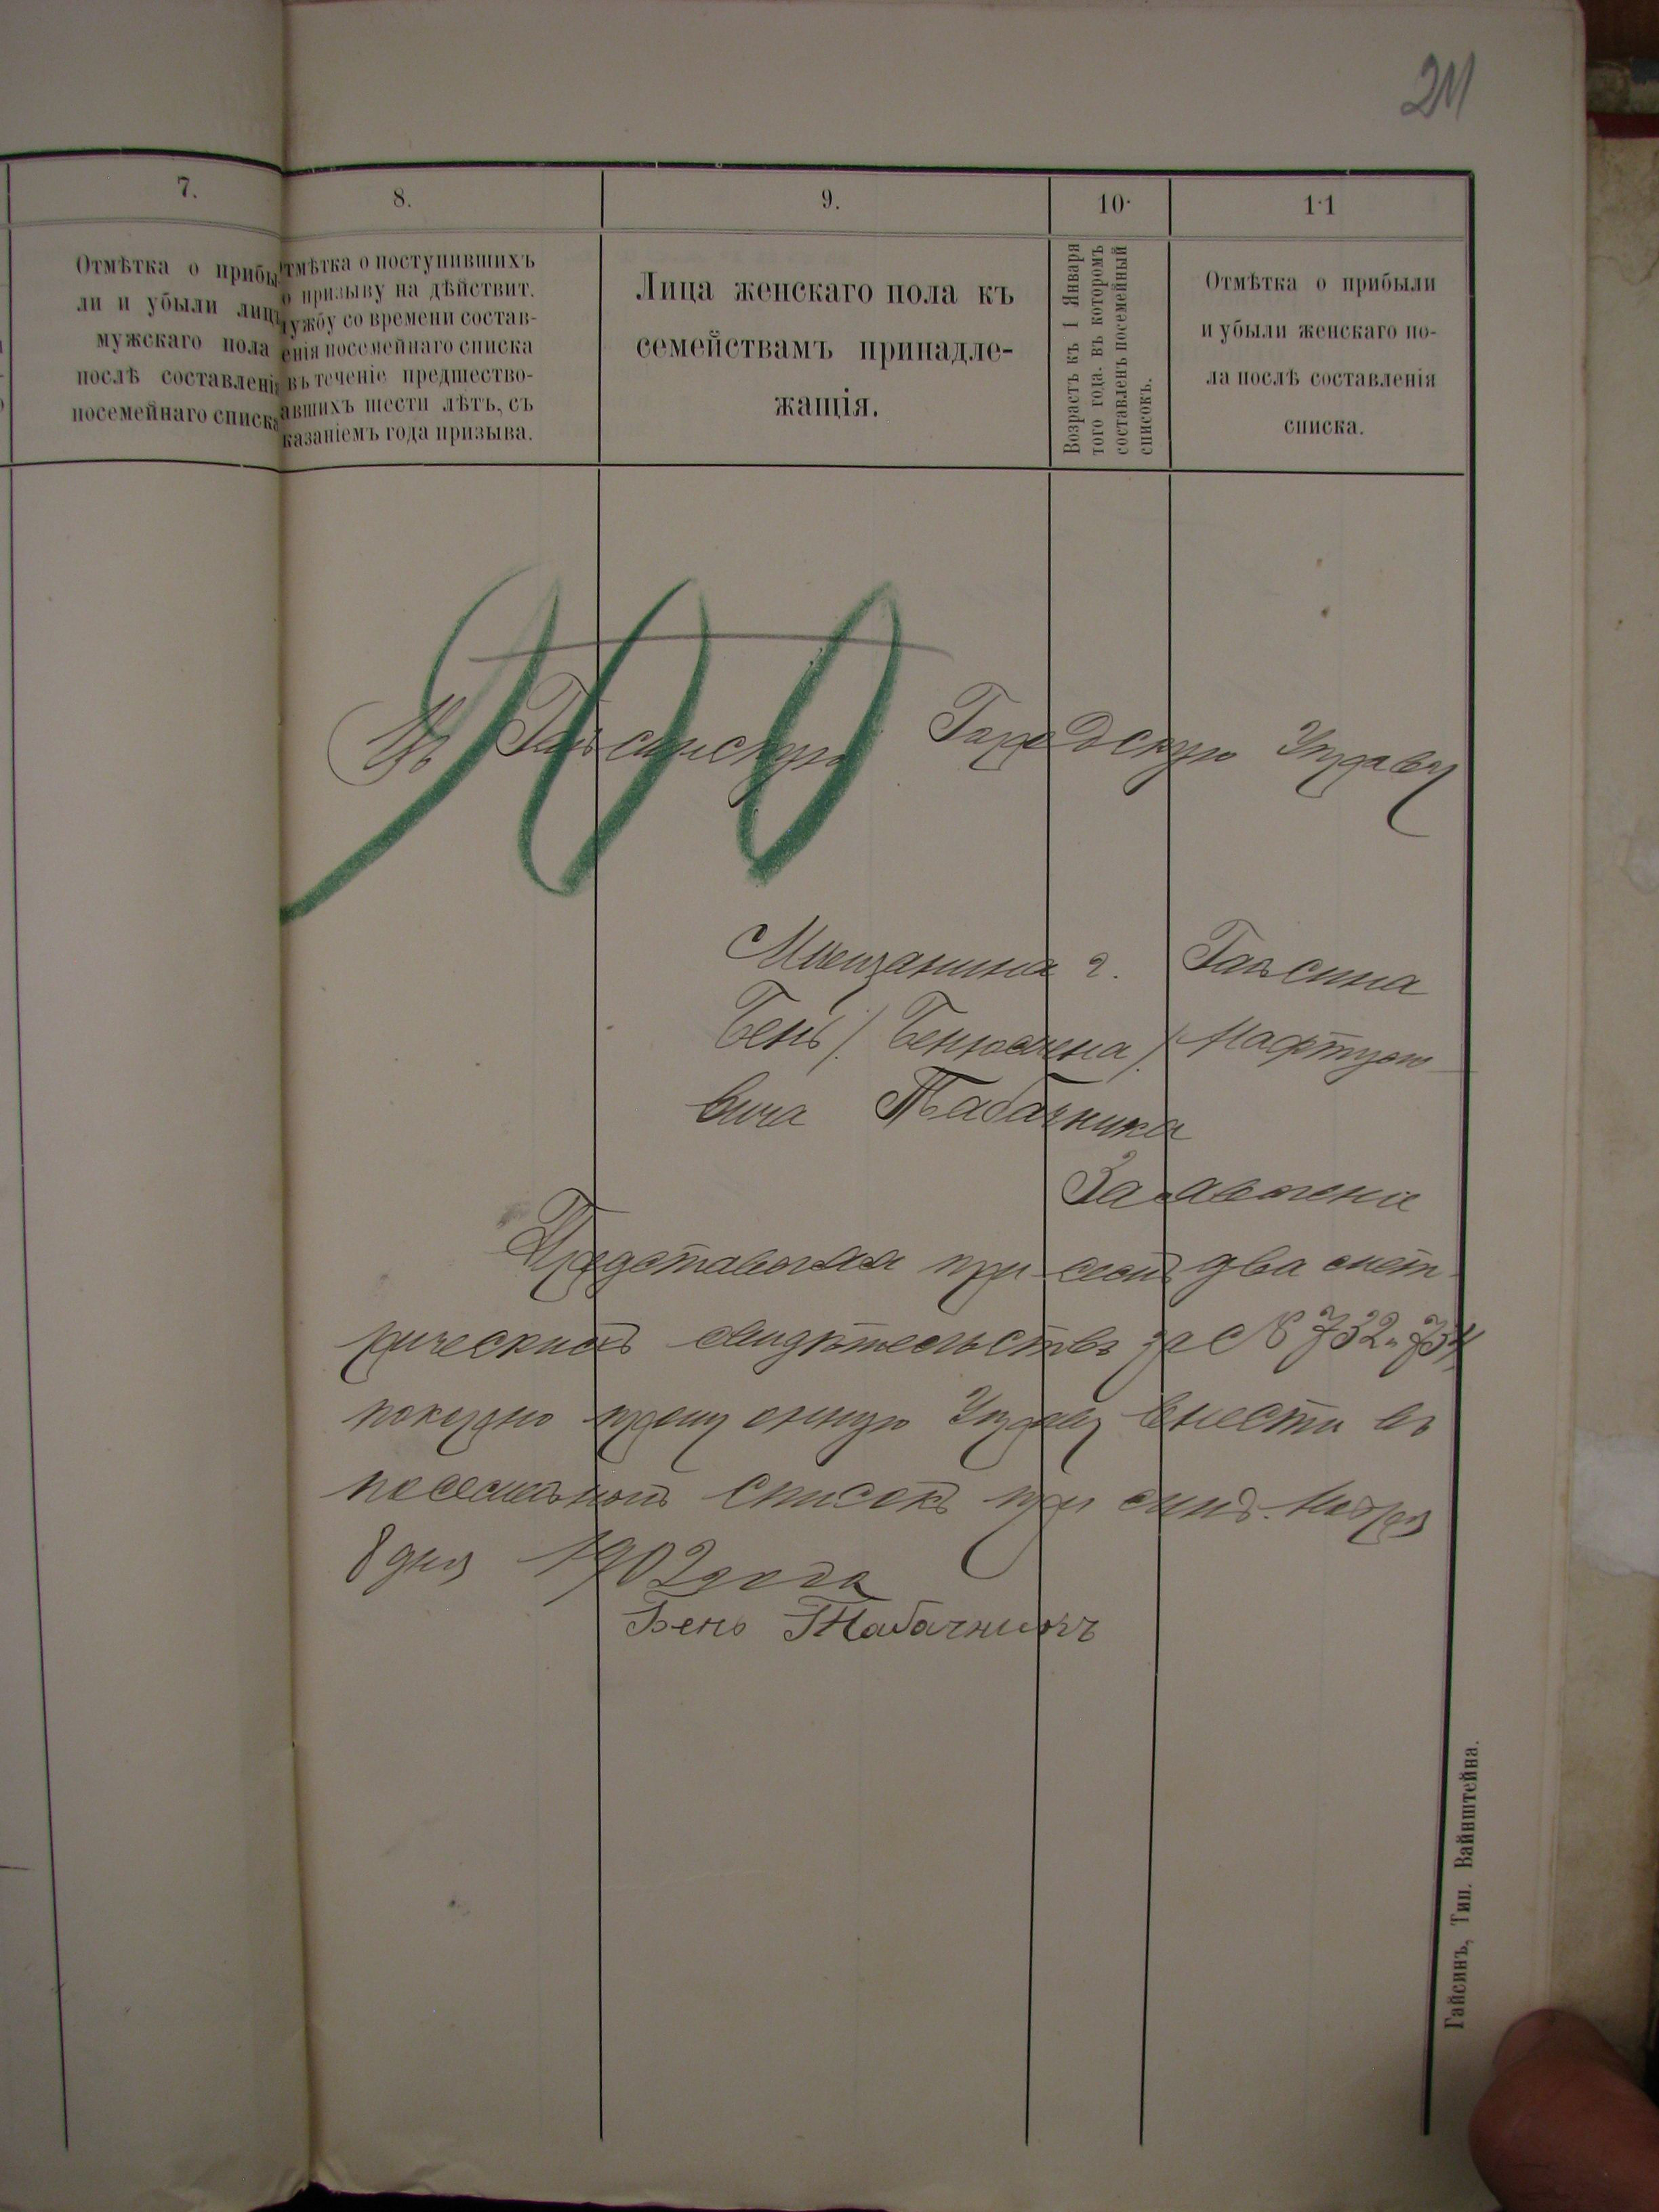 211
7.
Отмѣтка о прибы-
ли и убыли лицъ
мужскаго пола
послѣ составленія
посемейнаго списка
8.
Отмѣтка о поступившихъ
о призыву на дѣйствит.
лужбу со времени состав-
енія посемейнаго списка
въ теченіе предшество-
авшихъ шести лѣтъ, съ
казаніемъ года призыва.
9.
Лица женскаго пола къ
семействамъ принадле-
жащія.
10.
Возрастъ къ 1 Января
того года, въ которомъ
составленъ посемейный
списокъ.
11
Отмѣтка о прибыли
и убыли женскаго по-
ла послѣ составленія
списка.
Въ Гайсинскую Городскую Управу
Мѣщанина г. Гайсина
Бень /Бенюмена/ Нафтуло
вича Табачника
Заявленіе
Представляя при семъ два метри
рическихъ свидѣтельства за № 732 и 734
покорно прошу оную Управу внести въ
посемейной списокъ при Ноября
8 дня 1902 года
Бень Табачникъ
Гайсинъ, Тип. Вайнштейна.